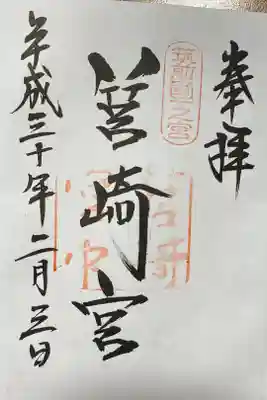 奉拝
筑前國一之宮
筥崎宮
平成三十年二月三日